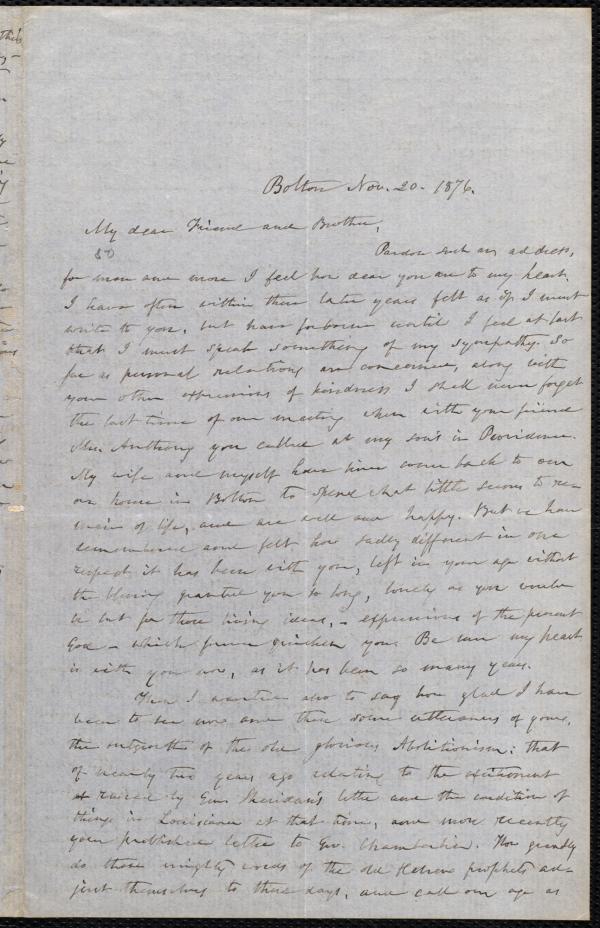 Bolton Nov. 20. 1876.
My dear Friend and Brother,
Pardon such an address,
for more and more I feel how dear you are to my heart.
I have often within these later years felt as if I must
write to you, but have forborne until I feel at last
that I must speak something of my sympathy. So
far as personal relations are concerned, along with
your other expressions of kindness I shall never forget
the last time of our meeting when with your friend
Mr. Anthony you called at my son's in Providence.
My wife and myself have since come back to our
own house in Bolton to spend what little seems to re-
main of life, and are well and happy. But we have
remembered and felt how sadly different in one
respect it has been with you, left in your age without
the blessing granted you so long, lonely as you would
be but for those living ideas, – expressions of the present
God – which from quicken you. Be sure my heart
is with you now, as it has been so many years.
Then I wanted also to say how glad I have
been to see now and then some utterances of yours,
the outgrowths of the old glorious Abolitionism: that
of nearly two years ago relating to the excitement
raised by Gen. Sheridan's letter and the condition of
things in Louisiana at that time, and more recently
your published letter to Gov. Chamberlain. How grandly
do those mighty words of the old Hebrew prophets ad-
just themselves to these days, and call our age as